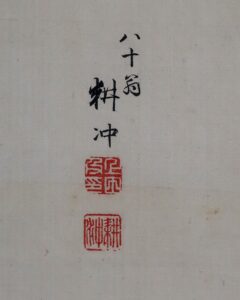 八十翁
耕冲
耕冲